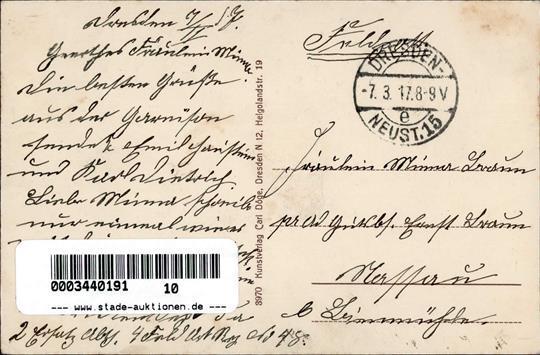 Dresden 7/3 17.
Geerthes Fräulein Minna
Die besten Grüße
aus der Garnison
sendet Emil
und Karl Dietrich
Liebe Minna schreib
nur einmal wieder
2 Ersatz Abt. 4 Feld Art Reg No 48.
Feldpost
DRESDEN-
-7.3.17.8-9V
e
NEUST.15
Fräulein Minna Braun
pr ad Gutbs. Ernst Braun
Nassau
b Bienenmühle
8970 Kunstverlag Carl Döge, Dresden N 12, Helgolandstr. 19
0003440191 10
--- www.stade-auktionen.de ---